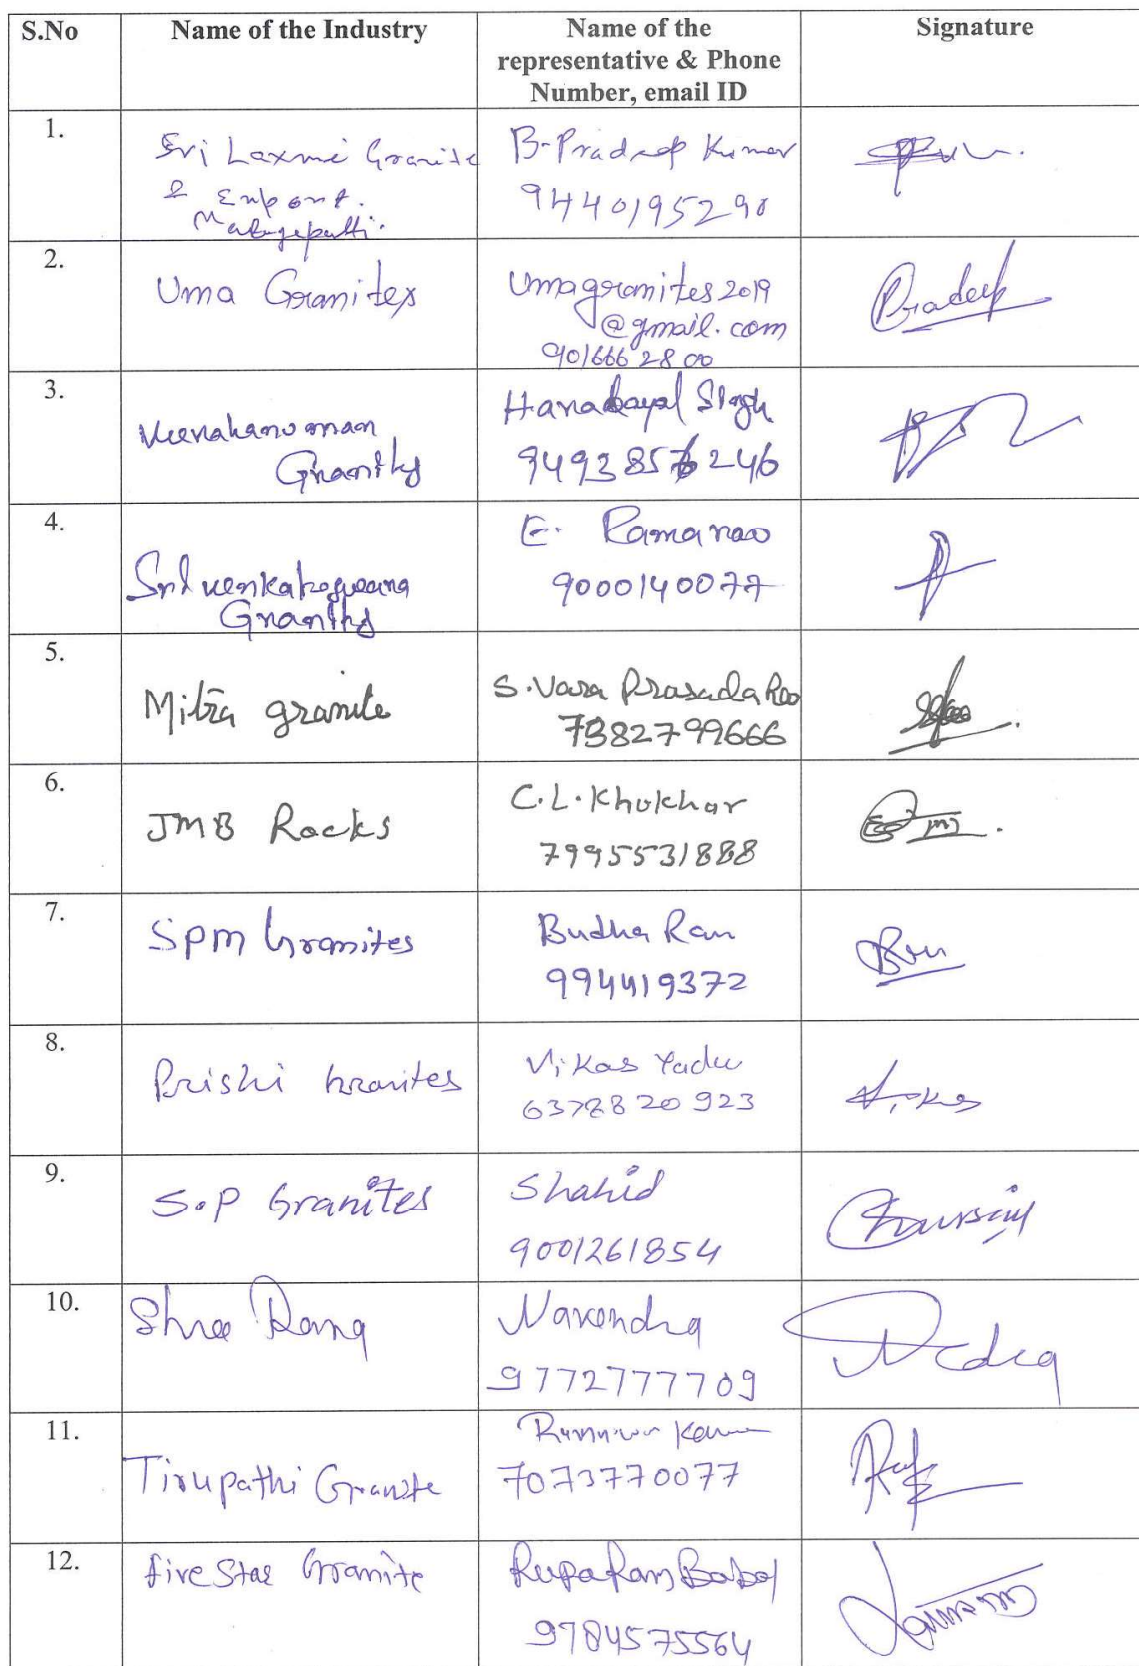 S.No Name of the Industry Name of the representative & Phone Number, email ID Signature
1.
Sri Laxmi Granite
& Export.
B-Pradeep Kumar
9440195290
2.
Uma Granites
Umagranites2019
@gmail.com
9016662800
Pradeep
3.
Veerahanuman
Granites
Haradayal Singh
4.
Sri Venkateswara
Granites
E. Ramarao
9000140077
5.
Mitra granite
S. Vara Prasada Rao
7382799666
6.
JMB Rocks
C.L. Khokhar
7995531888
7.
SPM Granites
Budha Ram
994419372
8.
Prishi Granites
Vikas Yadav
6378820923
Vikas
9.
S.P Granites
Shahid
9001261854
10.
Shree Rama
Narendra
9772777709
11.
Tirupathi Granite
7073770077
12.
Five Star Granite
Rupa Ram
9784575564